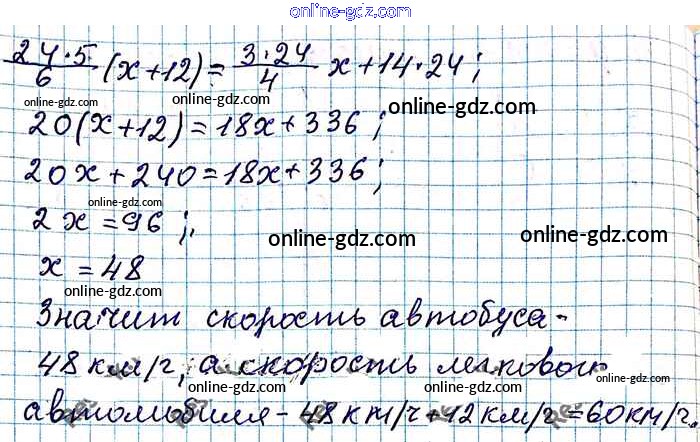 online-gdz.com
24·5/6 (x+12) = 3·24/4 x+14·24;
online-gdz.com online-gdz.com online-gdz.com
20(x+12)=18x+336;
online-gdz.com
20x+240=18x+336;
online-gdz.com
2x=96;
online-gdz.com online-gdz.com
x=48
online-gdz.com
Значит скорость автобуса -
online-gdz.com
48 км/г, а скорость легкового
online-gdz.com online-gdz.com online-gdz.com
автомобиля - 48 км/г+12 км/г=60 км/г.